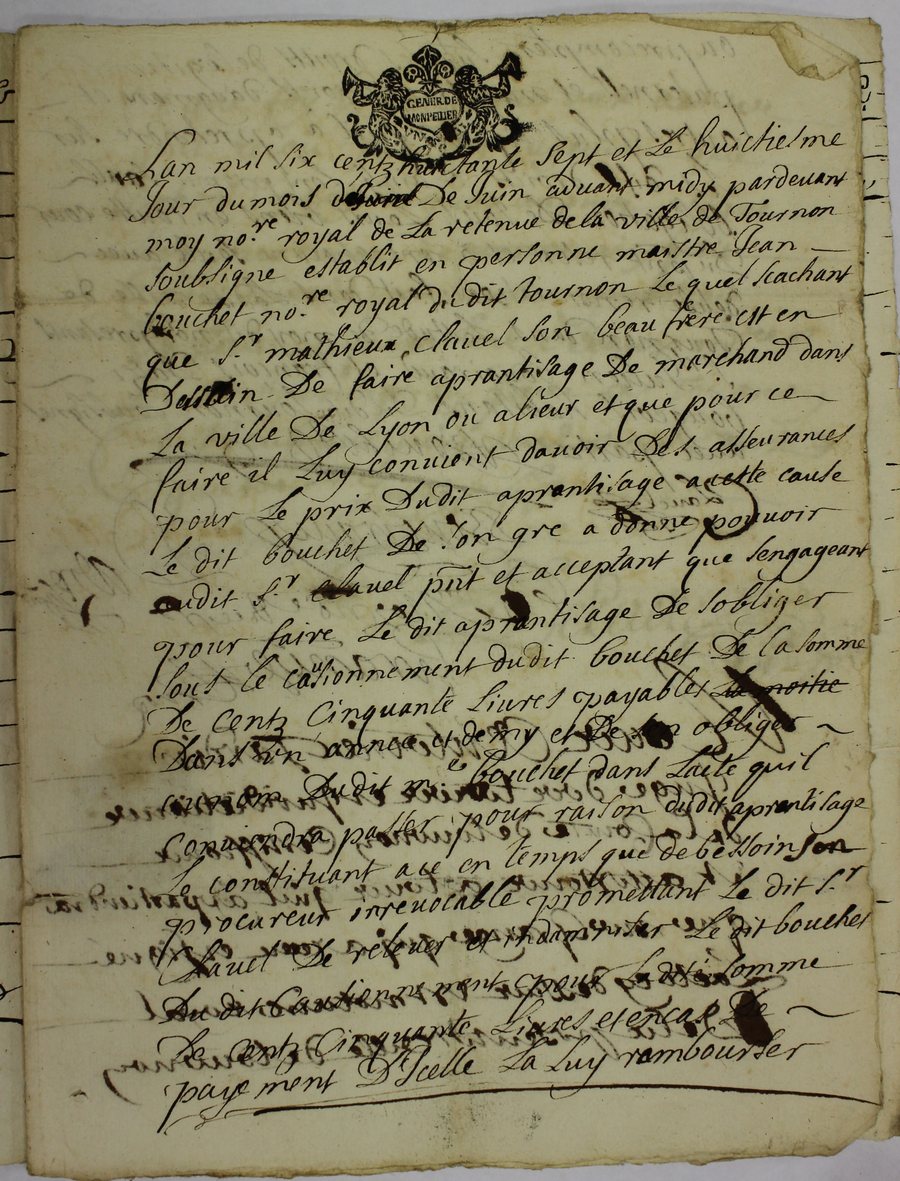 GENER.DE
MONPELLIER
Lan mil six centz huictante sept et Le huictiesme
Jour du mois De Juin advant midy pardevant
moy no.re royal de La retenue de la ville de Tournon
soubsigne establit en personne maistre Jean
bouchet no.re royal dudit tournon Le quel scachant
que s.r mathieux clavel son beau frere est en
Dessein De faire aprantisage De marchand dans
La ville De Lyon ou alieur et que pour ce
faire il Luy convient davoir Des asseurances
pour Le prix Dudit aprantisage a cette cause
Le dit bouchet De son gre a donne pouvoir
audit s.r clavel pnt et acceptant que sengageant
pour faire Le dit aprantisage De sobliger
sous le cautionnement dudit bouchet De la somme
De centz cinquante Livres payables la moitie
Dans un annee et demy et De obliger
Dudit me bouchet dans Lacte quil
conviendra passer pour raison dudit aprantisage
Le constituant a ce en temps que de bessoin son
procureur inrevocable promettant Le dit s.r
Clavel De relever et indamniser Le dit bouchet
Du dit Cautionnement pour La dite somme
De centz Cinquante Livres et en cas De
payement D'Icelle La Luy rambourser